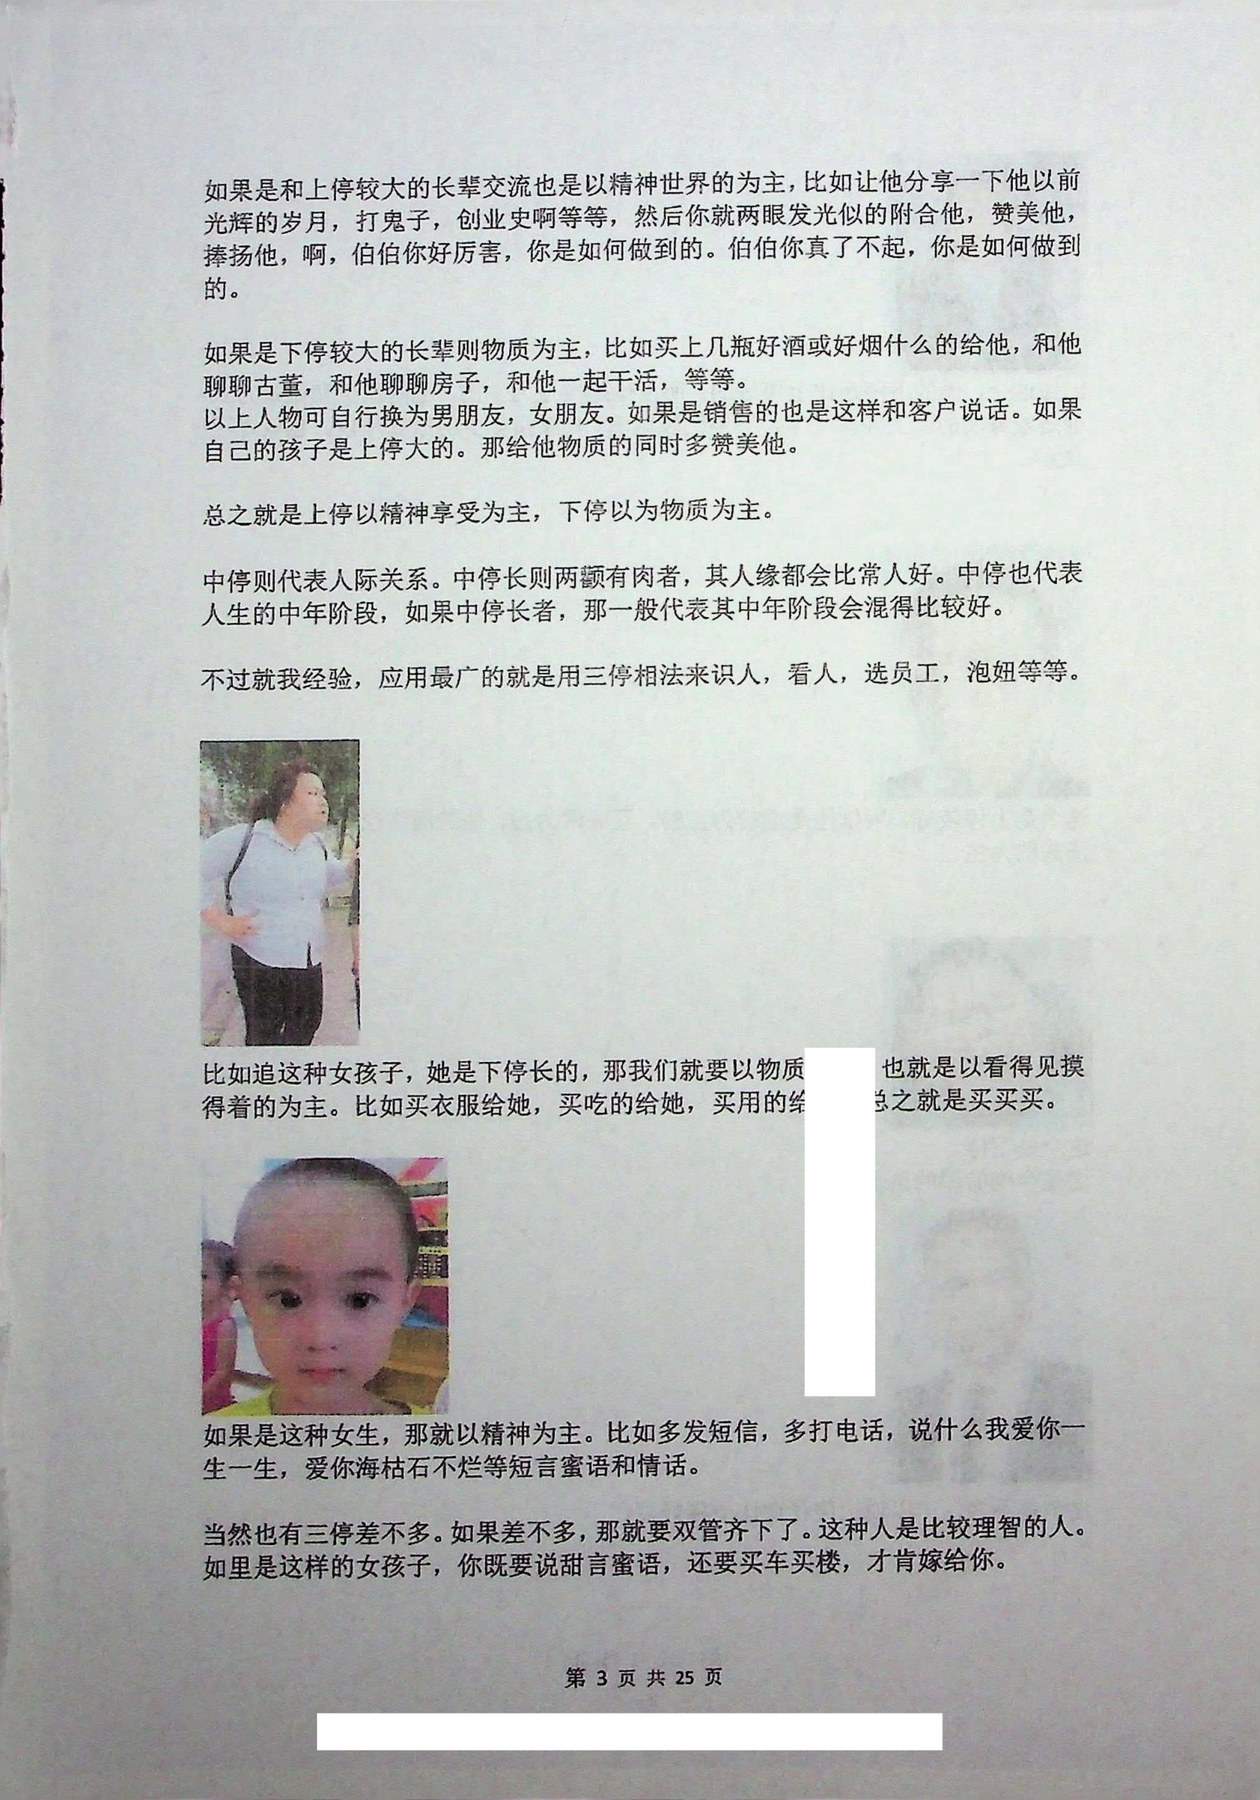 如果是和上停较大的长辈交流也是以精神世界的为主，比如让他分享一下他以前
光辉的岁月，打鬼子，创业史啊等等，然后你就两眼发光似的附合他，赞美他，
捧扬他，啊，伯伯你好厉害，你是如何做到的。伯伯你真了不起，你是如何做到
的。
如果是下停较大的长辈则物质为主，比如买上几瓶好酒或好烟什么的给他，和他
聊聊古董，和他聊聊房子，和他一起干活，等等。
以上人物可自行换为男朋友，女朋友。如果是销售的也是这样和客户说话。如果
自己的孩子是上停大的。那给他物质的同时多赞美他。
总之就是上停以精神享受为主，下停以为物质为主。
中停则代表人际关系。中停长则两颧有肉者，其人缘都会比常人好。中停也代表
人生的中年阶段，如果中停长者，那一般代表其中年阶段会混得比较好。
不过就我经验，应用最广的就是用三停相法来识人，看人，选员工，泡妞等等。
比如追这种女孩子，她是下停长的，那我们就要以物质 也就是以看得见摸
得着的为主。比如买衣服给她，买吃的给她，买用的给 总之就是买买买。
如果是这种女生，那就以精神为主。比如多发短信，多打电话，说什么我爱你一
生一生，爱你海枯石不烂等短言蜜语和情话。
当然也有三停差不多。如果差不多，那就要双管齐下了。这种人是比较理智的人。
如里是这样的女孩子，你既要说甜言蜜语，还要买车买楼，才肯嫁给你。
第 3 页 共 25 页